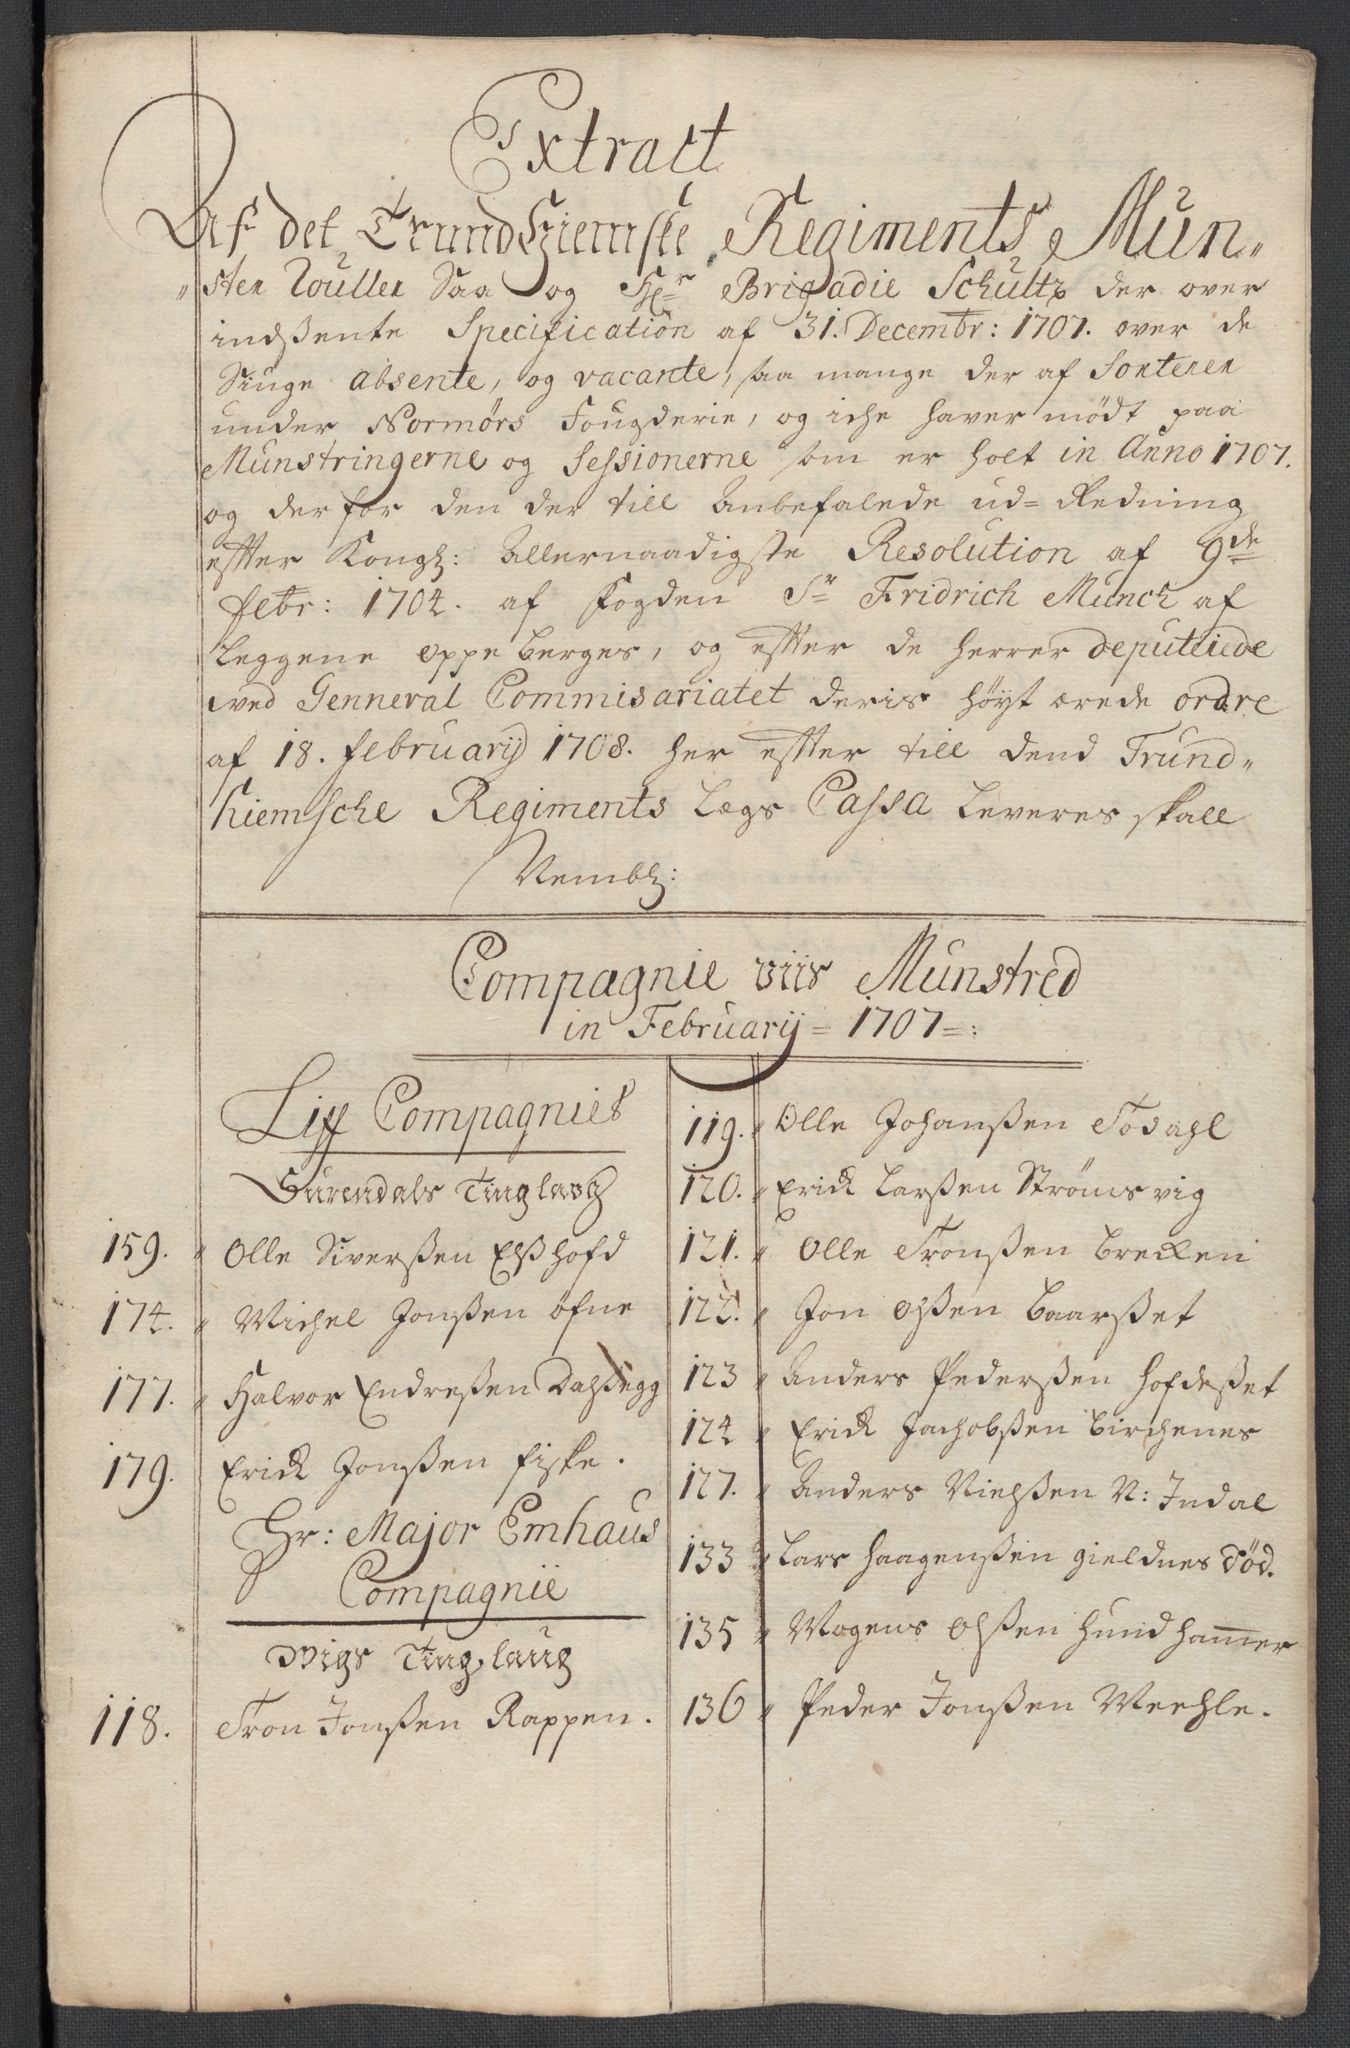 Extract
Af det Trundhiemske Regiments Mun„
„ster Rouller Saa og Hr Brigadie Schultz der over
indsente Specification af 31. Decembr: 1707. over de
Siuge absente, og vacante, saa mange der af Sorterer
under Normørs Fougderie, og iche haver mødt paa
Munstringerne og Sessionerne som er holt in Anno 1707.
og derfor den der till Anbefalede ud=Redning
effter Kongl: Allernaadigste Resolution af 9de
febr: 1704. af fogden Sr Fridrich Munch af
Leggene oppeberges, og effter de herrer deputerede
ved Genneral Commisariatet deris høyt ærede ordre
af 18. februarij 1708. her effter till dend Trund„
hiemsche Regiments Legs Cassa Leveres skall
Nembl:
Compagnie viis Munstred
in Februarij = 1707 =:
Liff Compagniet
Surendals Tinglaug
159. „ Olle Siverßen Elßhofd
174. „ Michel Jonßen Ofne
177. „ Halvor Endreßen Dalßegg
179. Erick Jonßen fiske.
Hr: Major Emhaus
Compagnie
Wigs Tinglaug
118. Tron Jonßen Rappen.
119. „ Olle Johanßen Todahl
120. „ Erick Larßen Strømsvig
121. „ Olle Tronßen Brecken
122. „ Jon Olßen Baarßet
123 „ Anders Pederßen Hofdeßet
124 „ Erick Jachobßen Birchenes
127. „ Anders Nielßen N: Indal
133 „ Lars Haagenßen Gieldnes død.
135 „ Mogens Olßen Hundhamer
136 „ Peder Jonßen Meehle.